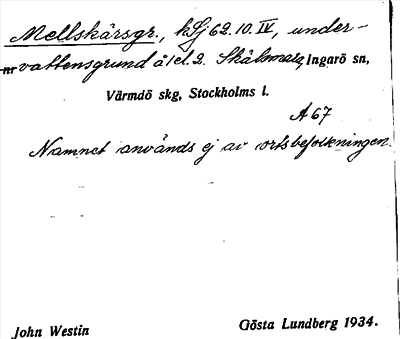 Mellskärsgr., kSj 62.10.IV, under-
vattensgrund å 1 el. 2. Skälsmara, Ingarö sn,
Värmdö skg, Stockholms l.
A 67
Namnet används ej av ortsbefolkningen.
John Westin
Gösta Lundberg 1934.